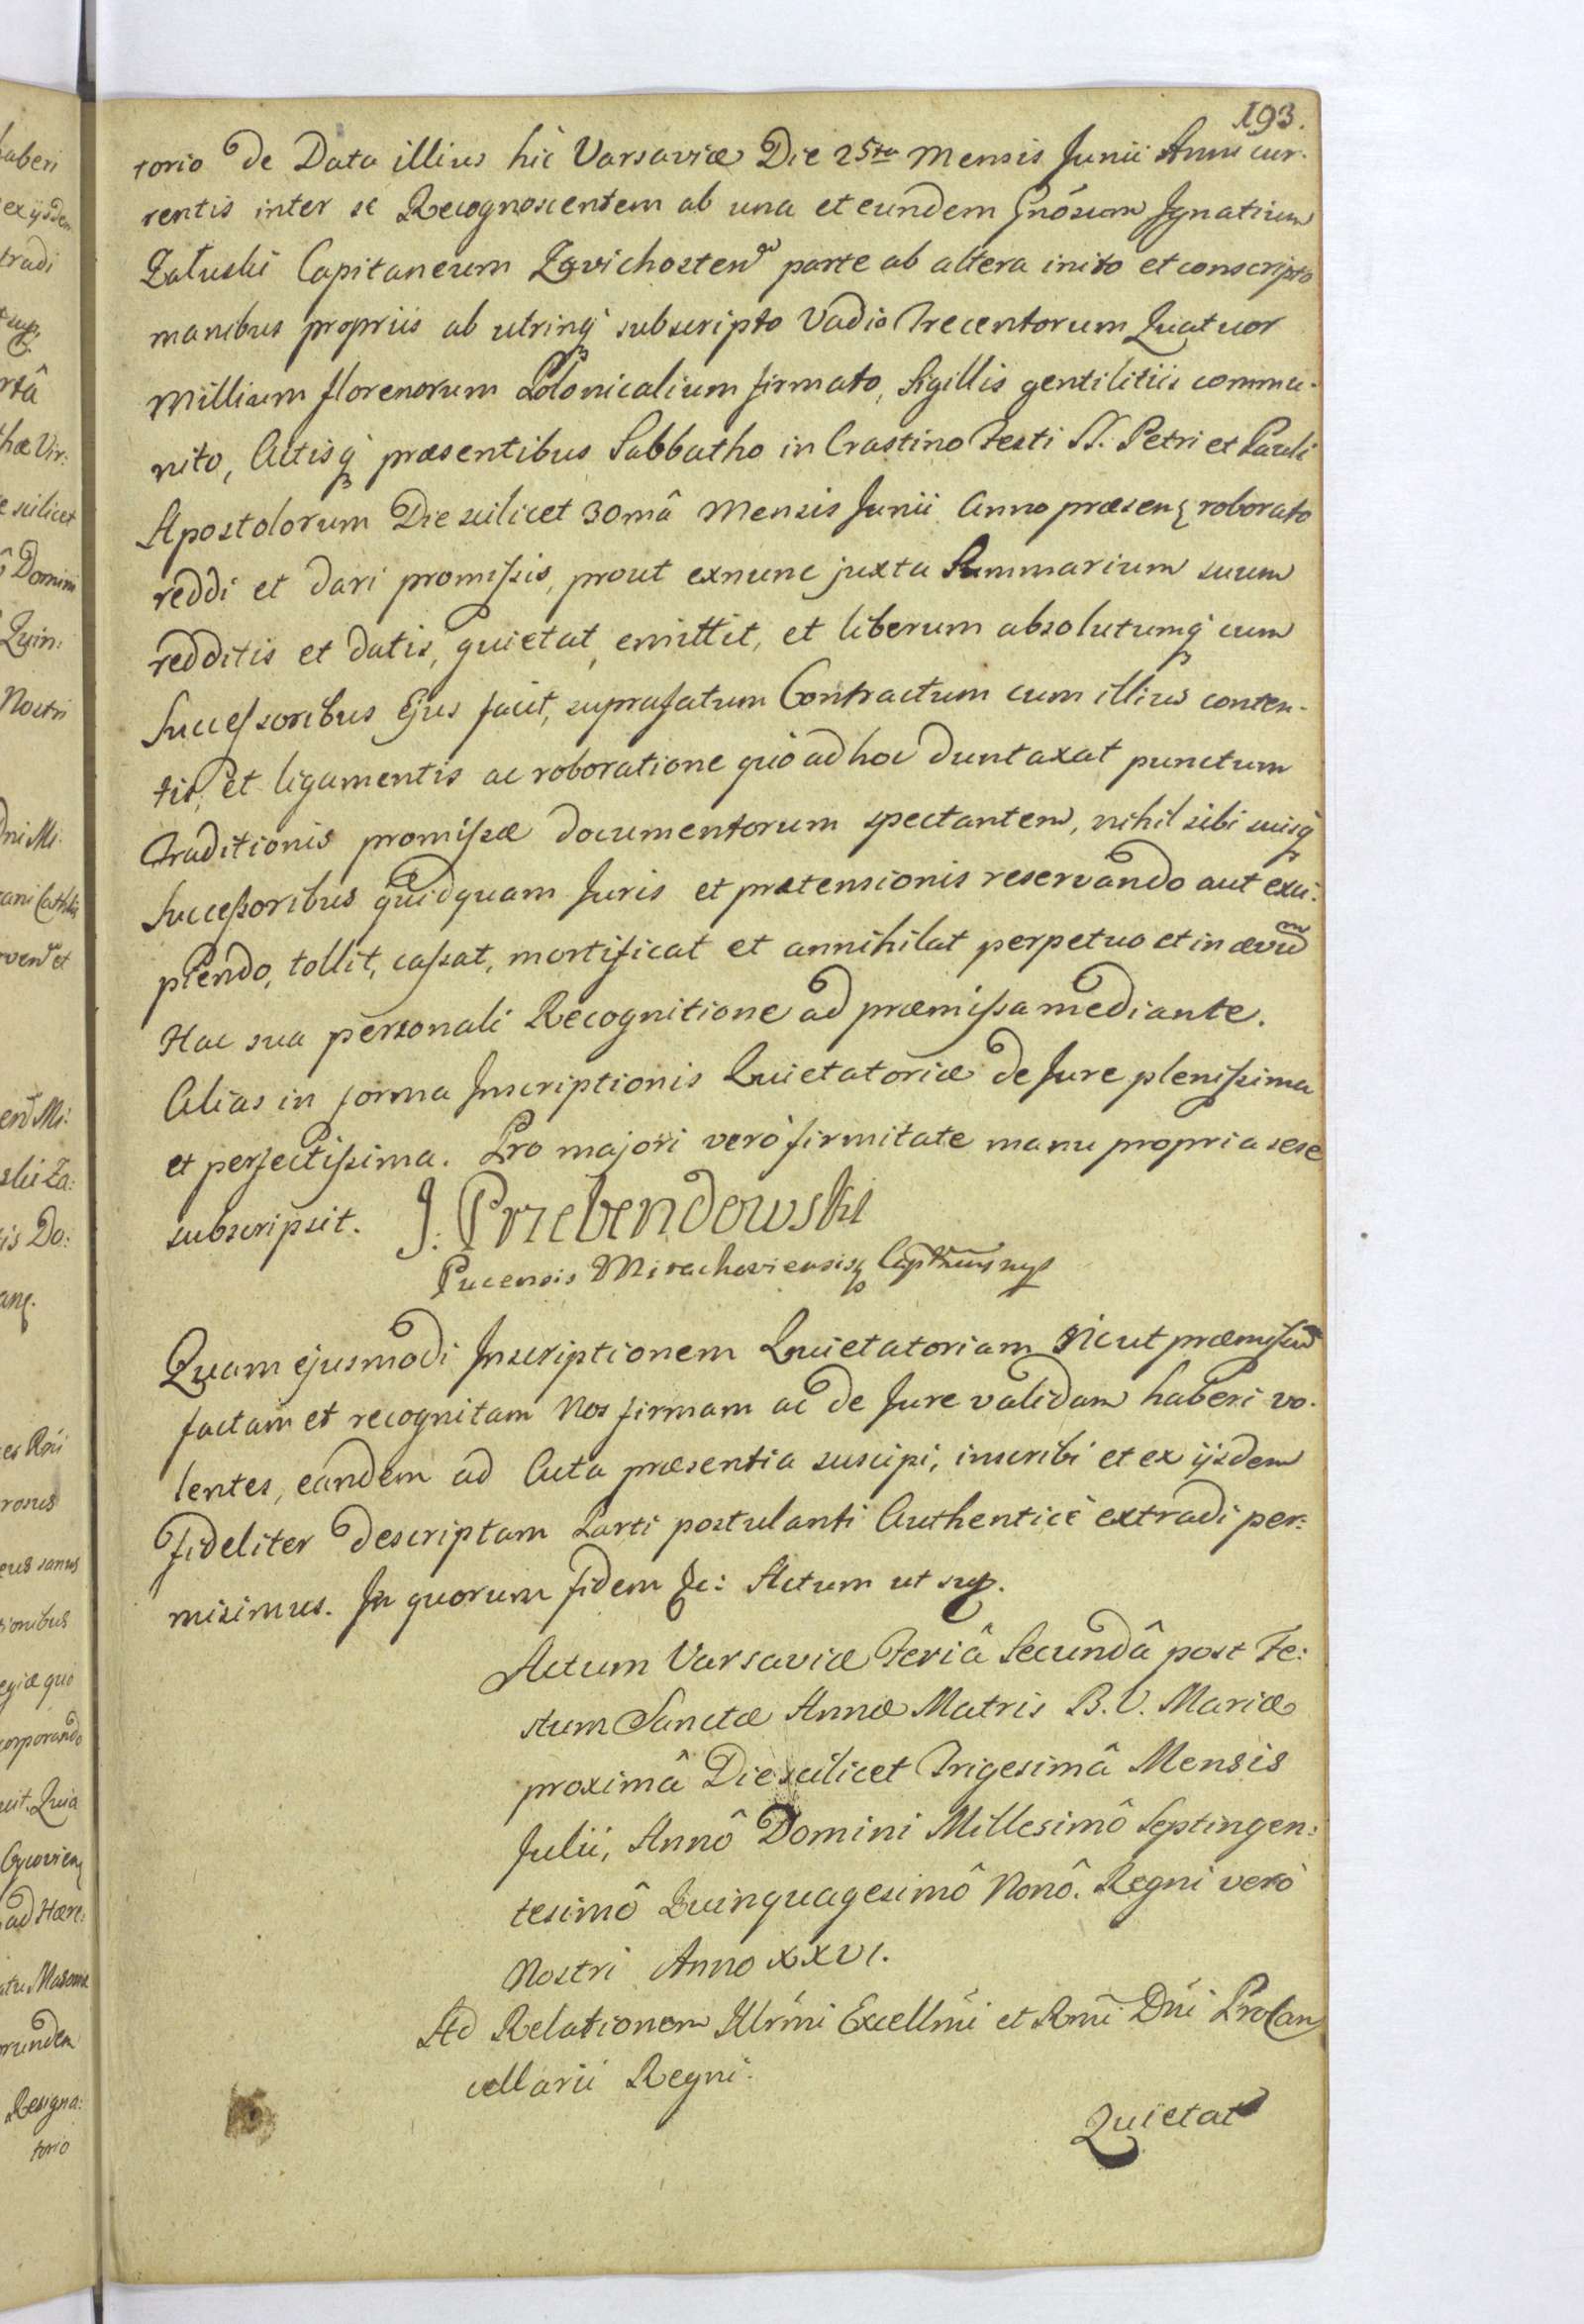 193.
torio de Data illius hic Varsaviæ Die 25ta Mensis Junii Anni cur-
rentis inter se Recognoscentem ab una et eundem Gnôsum Ignatium
Załuski Capitaneum Zavichosten parte ab altera inito et conscripto
manibus propriis ab utrinq subscripto Vadio Trecentorum Quatuor
Millium florenorum Polonicalium firmato, Sigillis gentilitiis commu-
nito, Actisq præsentibus Sabbatho in Crastino Festi SS. Petri et Pauli
Apostolorum Die scilicet 30mâ Mensis Junii Anno præsen roborato
reddi et dari promissis, prout exnunc juxta Summarium suum
redditis et datis, quietat, emittit, et liberum absolutumq cum
Successoribus Ejus facit, suprafatum Contractum cum illius conten-
tis, et ligamentis ac roboratione quò ad hoc duntaxat punctum
Traditionis promissæ documentorum spectantem, nihil sibi suisq
Successoribus quidquam Juris et prætensionis reservando aut exci-
piendo, tollit, cassat, mortificat et annihilat perpetuo et in ævum
Hac sua personali Recognitione ad præmissa mediante.
Alias in forma Inscriptionis Quietatoriæ de Jure plenissima
et perfectissima. Pro majori verò firmitate manu propria sese
subscripsit. J. Przebendowski
Pucensis Mirachoviensisq Captnus mp
Quam ejusmodi Inscriptionem Quietatoriam sicut præmissum
factam et recognitam Nos firmam ac de Jure validam haberi vo-
lentes, eandem ad Acta præsentia suscipi, inscribi et ex ijsdem
fideliter descriptam Parti postulanti Authenticè extradi per:
misimus. In quorum fidem &c: Actum ut sup.
Actum Varsaviæ Feriâ Secundâ post Fe:
stum Sanctæ Annæ Matris B. V. Mariæ
proximâ Die scilicet Trigesimâ Mensis
Julii, Annô Domini Millesimô Septingen:
tesimô Quinquagesimô Nonô. Regni verò
Nostri Anno XXVI.
Ad Relationem Illrmi Excellmi et Rmi Dni ProCan
cellarii Regni.
Quietat